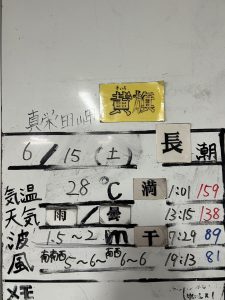 きいろ
黄旗
真栄田岬
6/15(土) 長潮
気温 28℃ 満 1:01 159
天気 雨/曇 13:15 138
波 1.5~2m 干 7:29 89
風 南南西5~6~南西6~6 19:13 81
メモ